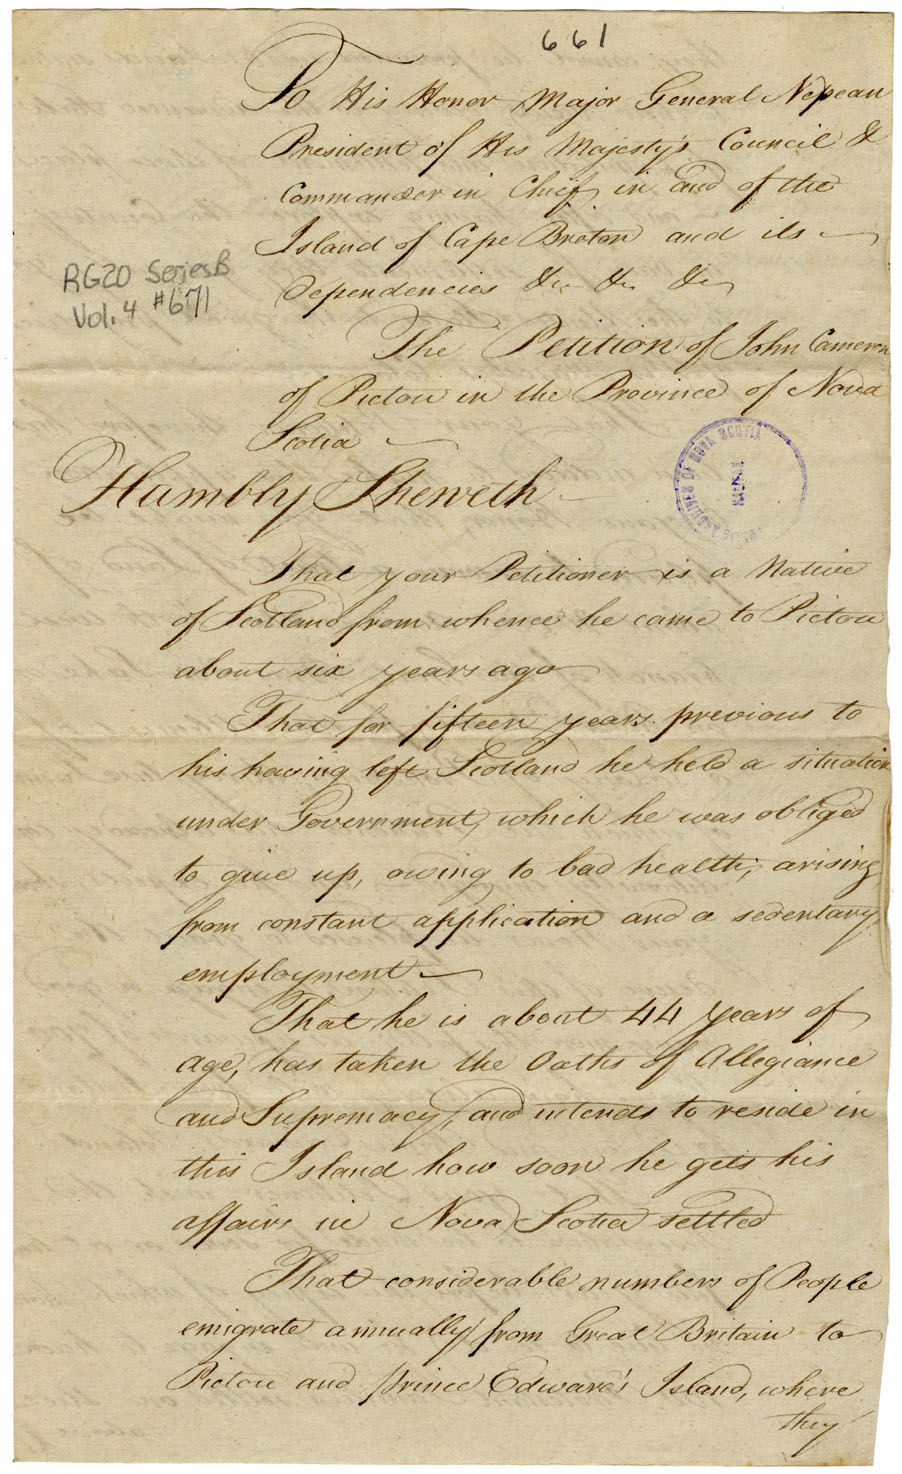 661
To His Honor Major General Nepean
President of His Majesty's Council &
Commander in Chief, in and of the
Island of Cape Breton and its
Dependencies &c &c &c
RG20 Series B
Vol. 4 #671
The Petition of John Cameron
of Pictou in the Province of Nova
Scotia
PUBLIC ARCHIVES OF NOVA SCOTIA
Humbly Sheweth
That your Petitioner is a Native
of Scotland from whence he came to Pictou
about six years ago
That for fifteen years previous to
his having left Scotland he held a situation
under Government, which he was obliged
to give up, owing to bad health, arising
from constant application and a sedentary
employment
That he is about 44 years of
age, has taken the Oaths of Allegiance
and Supremacy, and intends to reside in
this Island how soon he gets his
affairs in Nova Scotia settled
That considerable numbers of People
emigrate annually from Great Britain to
Pictou and prince Edward's Island, where
they